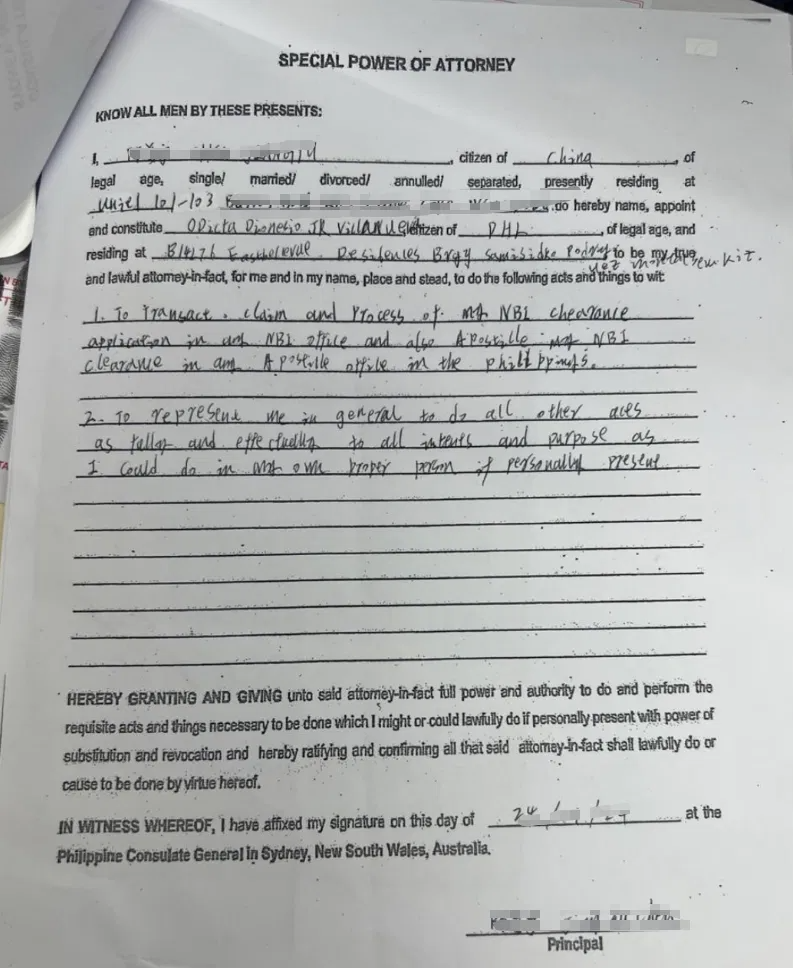 SPECIAL POWER OF ATTORNEY
KNOW ALL MEN BY THESE PRESENTS:
I, citizen of China, of
legal age, single/ married/ divorced/ annulled/ separated, presently residing at
Unit 101-103 do hereby name, appoint
and constitute Odicta Dionesio JR Villanue citizen of PHL, of legal age, and
residing at Residences Brgy to be my true
and lawful attorney-in-fact, for me and in my name, place and stead, to do the following acts and things to wit:
1. To Transact, claim and Process of my NBI chearance
application in any NBI office and also Apostille my NBI
clearance in any Apostille office in the
2. To represent me in general to do all other acts
as and to all intents and purpose as
I could do in my own proper person if personally present
HEREBY GRANTING AND GIVING unto said attorney-in-fact full power and authority to do and perform the
requisite acts and things necessary to be done which I might or could lawfully do if personally present with power of
substitution and revocation and hereby ratifying and confirming all that said attorney-in-fact shall lawfully do or
cause to be done by virtue hereof.
IN WITNESS WHEREOF, I have affixed my signature on this day of 24 at the
Philippine Consulate General in Sydney, New South Wales, Australia.
Principal